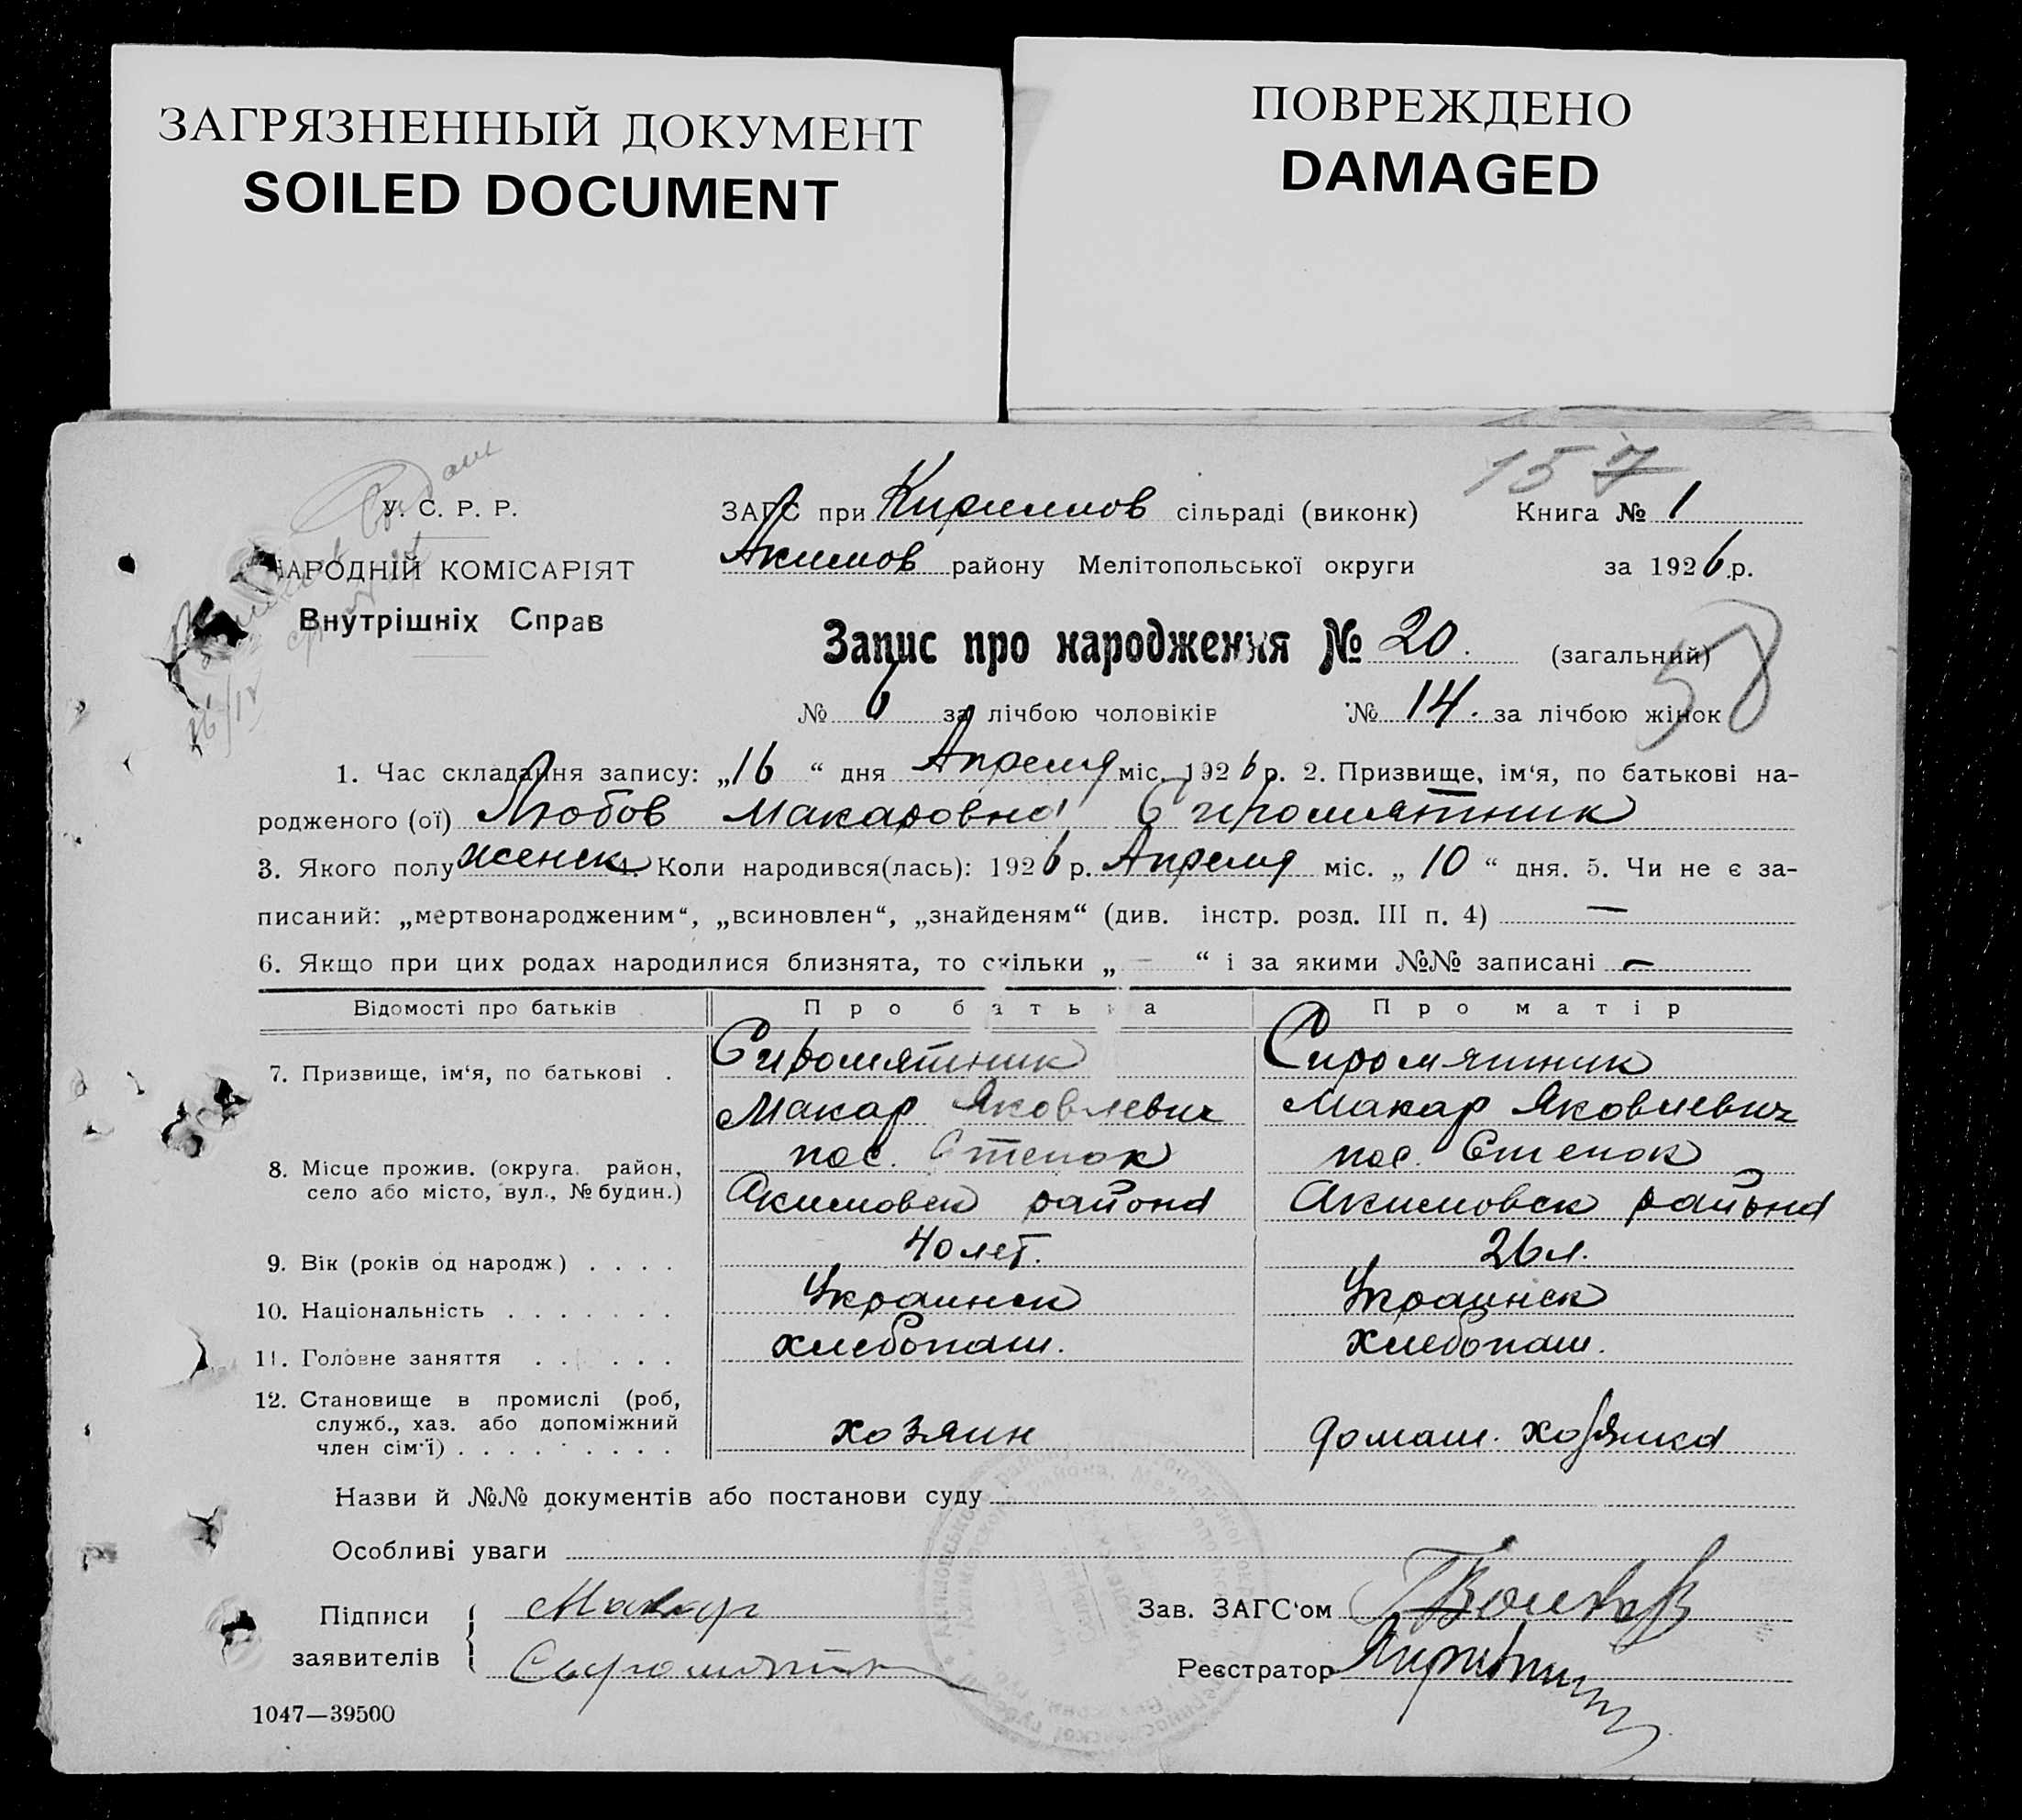 ЗАГРЯЗНЕННЫЙ ДОКУМЕНТ
SOILED DOCUMENT
ПОВРЕЖДЕНО
DAMAGED
157
У. С. Р. Р.
НАРОДНІЙ КОМІСАРІЯТ
Внутрішніх Справ
ЗАГС при Кириллов сільраді (виконк) Книга № 1
Акимов району Мелітопольської округи за 1926 р.
Запис про народження № 20. (загальний)
58
№ 6 за лічбою чоловіків № 14. за лічбою жінок
1. Час складання запису: „16“ дня Апреля міс. 1926 р. 2. Призвище, ім‘я, по батькові на-
родженого (ої) Любов Макаровна Сиромятник
3. Якого полу женск 4. Коли народився(лась): 1926 р. Апреля міс. „10“ дня. 5. Чи не є за-
писаний: „мертвонародженим“, „всиновлен“, „знайденям“ (див. інстр. розд. III п. 4) —
6. Якщо при цих родах народилися близнята, то скільки „ — “ і за якими №№ записані —
Відомості про батьків Про батька Про матір
7. Призвище, ім‘я, по батькові . Сиромятник Сиромятник
Макар Яковлевич Макар Яковлевич
8. Місце прожив. (округа, район, пос. Степок пос. Степок
село або місто, вул., № будин.) Акимовск района Акимовск района
9. Вік (років од народж) . . . . 40 лет. 26 л.
10. Національність . . . . . . . Украинск Украинск
11. Головне заняття . . . . . . хлебопаш. хлебопаш.
12. Становище в промислі (роб,
служб., хаз. або допоміжний
член сім‘ї) . . . . . . . . . хозяин домаш. хозяйка
Назви й №№ документів або постанови суду
Особливі уваги
Підписи Макар Зав. ЗАГС‘ом
заявителів Сыромятн Реєстратор
1047—39500